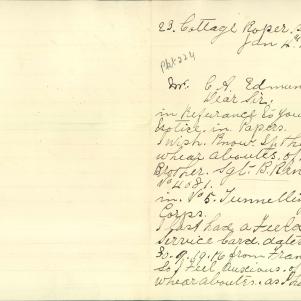 23. Cottage Roper. S
Jan 4th
Mr. C. A. Edmun
Dear Sir,
in Refurance to You
Notice in Papers
I Wish Know If th
whear abouts of
Brother. Sgt. B. Ran
No 4081.
in No 5. Tunnellin
Corps.
I last had a Field
Service Card dated
30.9.19.16 from Fran
So I Feel Auxious of
whear abouts. as I h